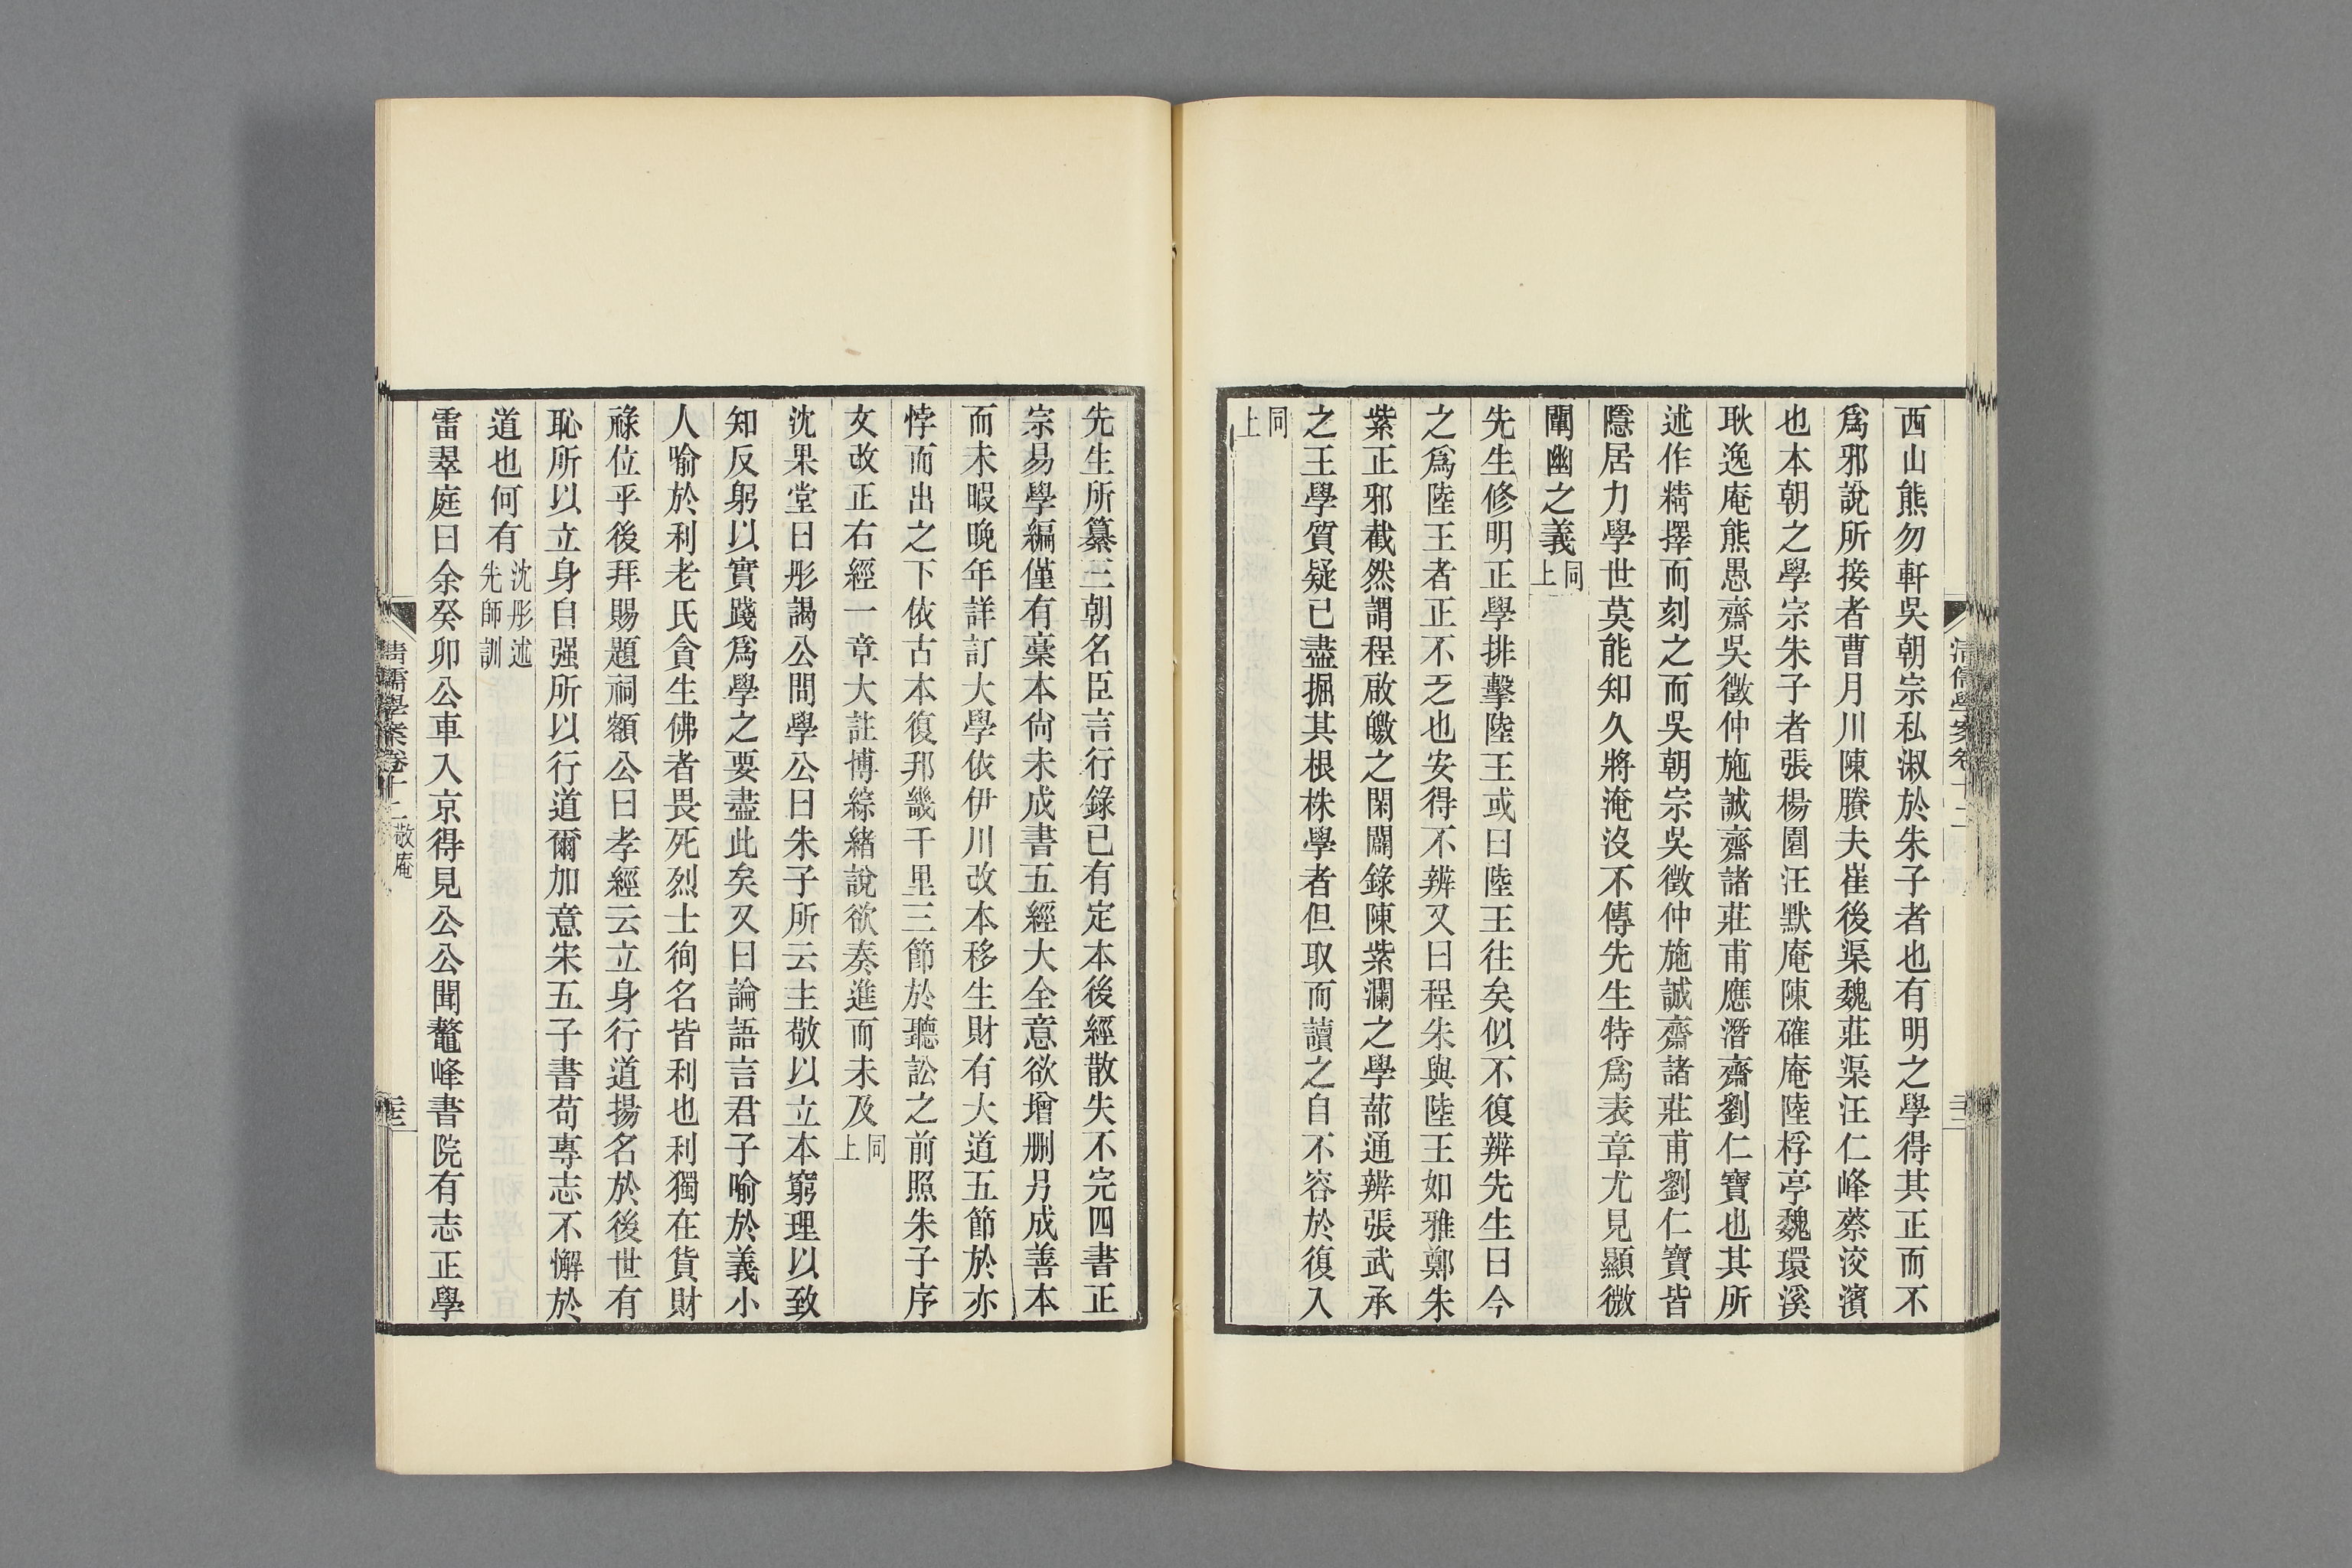 西山熊勿軒吳朝宗私淑於朱子者也有明之學得其正而不
爲邪說所接者曹月川陳賸夫崔後渠魏莊渠汪仁峰蔡洨濱
也本朝之學宗朱子者張楊園汪默庵陳確庵陸桴亭魏環溪
耿逸庵熊愚齋吳徵仲施誠齋諸莊甫應潛齋劉仁寶也其所
述作精擇而刻之而吳朝宗吳徵仲施誠齋諸莊甫劉仁寶皆
隱居力學世莫能知久將淹沒不傳先生特爲表章尤見顯微
闡幽之義同上
先生修明正學排擊陸王或曰陸王往矣似不復辨先生曰今
之爲陸王者正不乏也安得不辨又曰程朱與陸王如雅鄭朱
紫正邪截然謂程啟皦之閑闢錄陳紫瀾之學蔀通辨張武承
之王學質疑已盡掘其根株學者但取而讀之自不容於復入
同上
先生所纂三朝名臣言行錄已有定本後經散失不完四書正
宗易學編僅有稾本尙未成書五經大全意欲增删另成善本
而未暇晚年詳訂大學依伊川改本移生財有大道五節於亦
悖而出之下依古本復邦畿千里三節於聽訟之前照朱子序
文改正右經一章大註博綜緒說欲奏進而未及同上
沈果堂曰彤謁公問學公曰朱子所云主敬以立本窮理以致
知反躬以實踐爲學之要盡此矣又曰論語言君子喻於義小
人喻於利老氏貪生佛者畏死烈士徇名皆利也利獨在貨財
祿位乎後拜賜題祠額公曰孝經云立身行道揚名於後世有
恥所以立身自强所以行道爾加意宋五子書苟專志不懈於
道也何有沈彤述先師訓
雷翠庭曰余癸卯公車入京得見公公聞鼇峰書院有志正學
清儒學案卷十二 敬庵